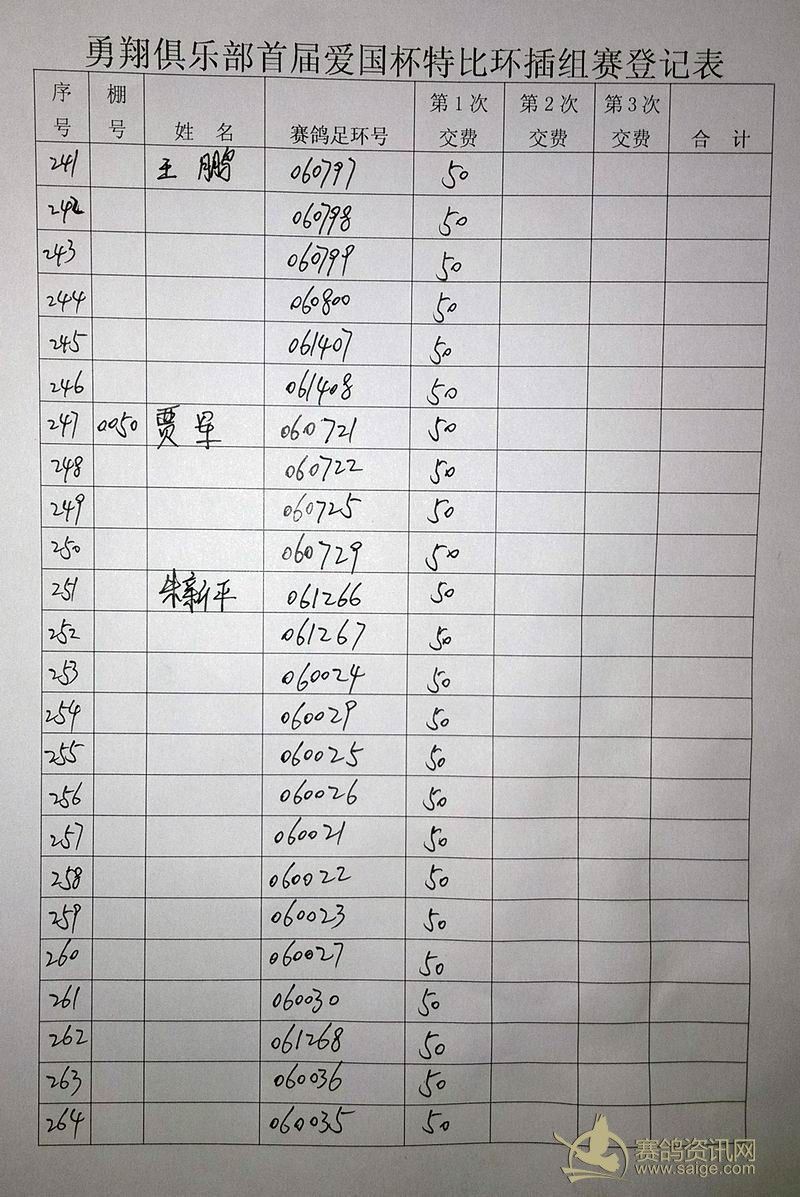 勇翔俱乐部首届爱国杯特比环插组赛登记表
序号 棚号 姓 名 赛鸽足环号 第1次交费 第2次交费 第3次交费 合 计
241 王鹏 060797 50
242 060798 50
243 060799 50
244 060800 50
245 061407 50
246 061408 50
247 0050 贾军 060721 50
248 060722 50
249 060725 50
250 060729 50
251 朱新平 061266 50
252 061267 50
253 060024 50
254 060029 50
255 060025 50
256 060026 50
257 060021 50
258 060022 50
259 060023 50
260 060027 50
261 060030 50
262 061268 50
263 060036 50
264 060035 50
赛鸽资讯网
www.saige.com